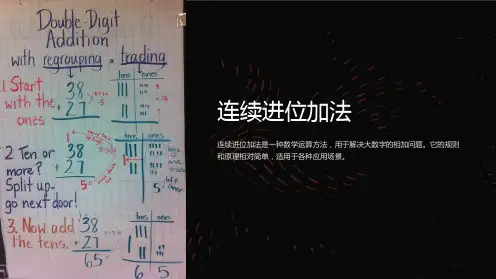 Double-Digit
Addition
with regrouping = trading
1. Start
with the
ones
38
+ 27
tens ones
2. Ten or
more?
Split up-
go next door!
1
38
+ 27
5
tens ones
3. Now add
the tens.
38
+ 27
65
tens ones
6 5
连续进位加法
连续进位加法是一种数学运算方法，用于解决大数字的相加问题。它的规则
和原理相对简单，适用于各种应用场景。